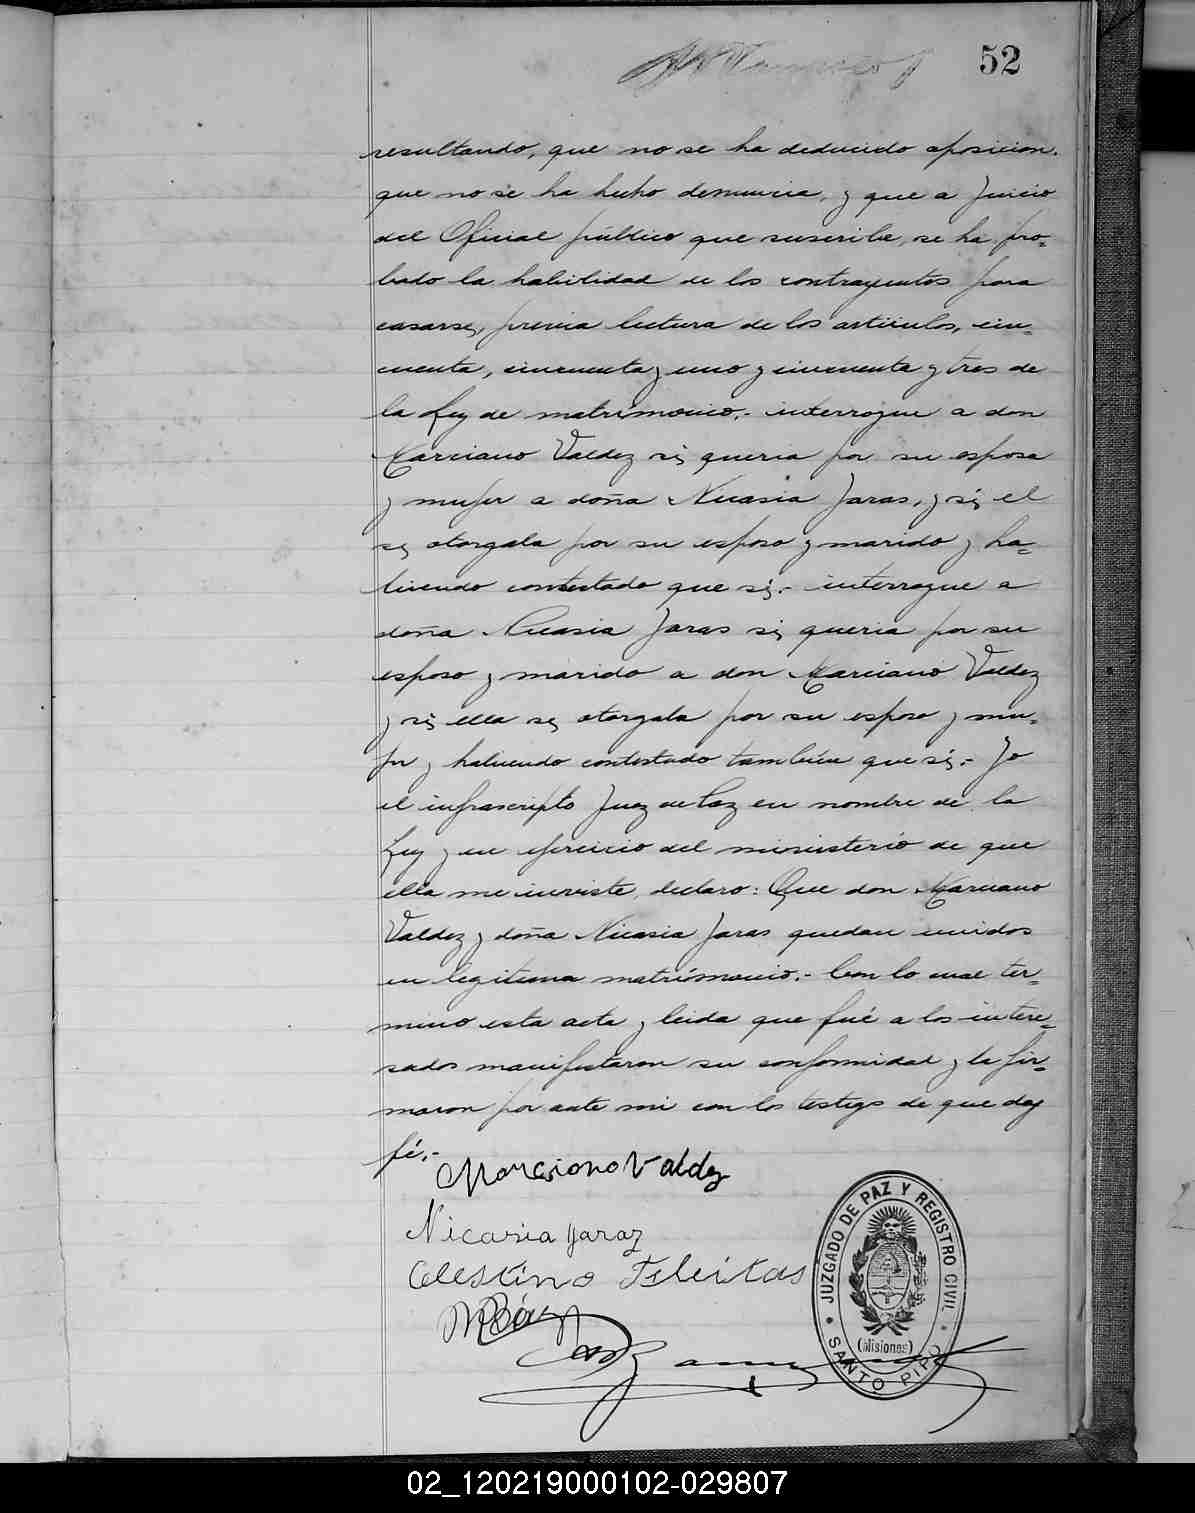 52
resultando, que no se ha deducido oposicion.
que no se ha hecho denuncia, y que a juicio
del Oficial público que suscribe, se ha pro-
bado la habilidad de los contrayentes para
casarse, previa lectura de los articulos, cin-
cuenta, cincuenta y uno y cincuenta y tres de
la Ley de matrimonio.- interrogue a don
Marciano Valdez si, queria por su esposa
y mujer a doña Nicasia Jaras, y si, el
se otorgala por su esposo y marido y ha-
biendo contestado que si.- interrogue a
doña Nicasia Jaras si, queria por su
esposo y marido a don Marciano Valdez
y si, ella se otorgala por su esposa y mu-
jer y habiendo contestado tambien que si.- Yo
el infrascripto Juez de Paz en nombre de la
Ley y en ejercicio del ministerio de que
ella me inviste, declaro: Que don Marciano
Valdez y doña Nicasia Jaras quedan unidos
en legitimo matrimonio.- Con lo cual ter-
mino esta acta y leida que fué a los intere-
sados manifestaron su conformidad y la fir-
maron por ante mi con los testigos de que doy
fé.-
Marciano Valdez
Nicasia Jaraz
Celestino Fleitas
JUZGADO DE PAZ Y REGISTRO CIVIL
(Misiones)
SANTO PIPO
02_120219000102-029807